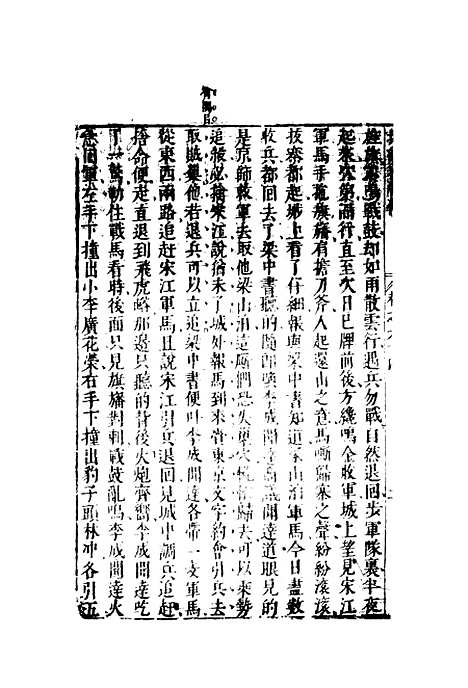 旌旗擂鳴戰鼓却如雨散雲行遇兵勿戰自然退回步軍隊裏半夜
起來次第而行直至次日巳牌前後方纔鳴金收軍城上望見宋江
軍馬手拖旗旛肩擔刀斧人人起還山之意馬嘶歸寨之聲紛紛滚滚
拔寨都起城上看了仔細報與梁中書知道梁山泊軍馬今日盡數
收兵都回去了梁中書聽的隨即喚李成聞達商議聞達道眼見的
是京師救軍去取他梁山泊這厮們恐失巢穴慌忙歸去可以乘勢
追殺必擒宋江說猶未了城外報馬到來賫東京文字約會引兵去
取賊巢他若退兵可以立追梁中書便叫李成聞達各帶一支軍馬
從東西兩路追赶宋江軍馬且說宋江引兵退回見城中調兵追赶
捨命便走直退到飛虎峪那邊只聽的背後火炮齊響李成聞達吃
了一驚勒住戰馬看時後面只見旗旛對刺戰鼓亂鳴李成聞達火
急回軍左手下撞出小李廣花榮右手下撞出豹子頭林冲各引五